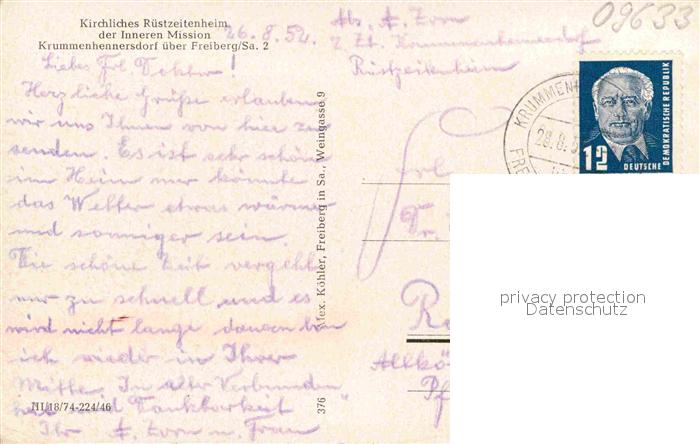 Kirchliches Rüstzeitenheim
der Inneren Mission
Krummenhennersdorf über Freiberg/Sa. 2
26.8.52.
Liebes Frl. Doktor!
Herzliche Grüße erlauben
wir uns Ihnen von hier zu
senden. Es ist sehr schön
im Heim nur könnte
das Wetter etwas wärmer
und sonniger sein.
Die schöne Zeit vergeht
nur zu schnell und es
wird nicht lange dauern bin
ich wieder in Ihrer
Mitte. In alter Verbunden
heit und Dankbarkeit
Ihr A. Zorn u. Frau
III/18/74-224/46
Alex. Köhler, Freiberg in Sa., Weingasse 9
376
Abs. A. Zorn
z. Zt. Krummenhennersdorf
Rüstzeitenheim
09633
KRUMMENH
28.8.5
FRE
12
DEUTSCHE
DEMOKRATISCHE REPUBLIK
Frl
Dr.
Allkö
Pf
privacy protection
Datenschutz